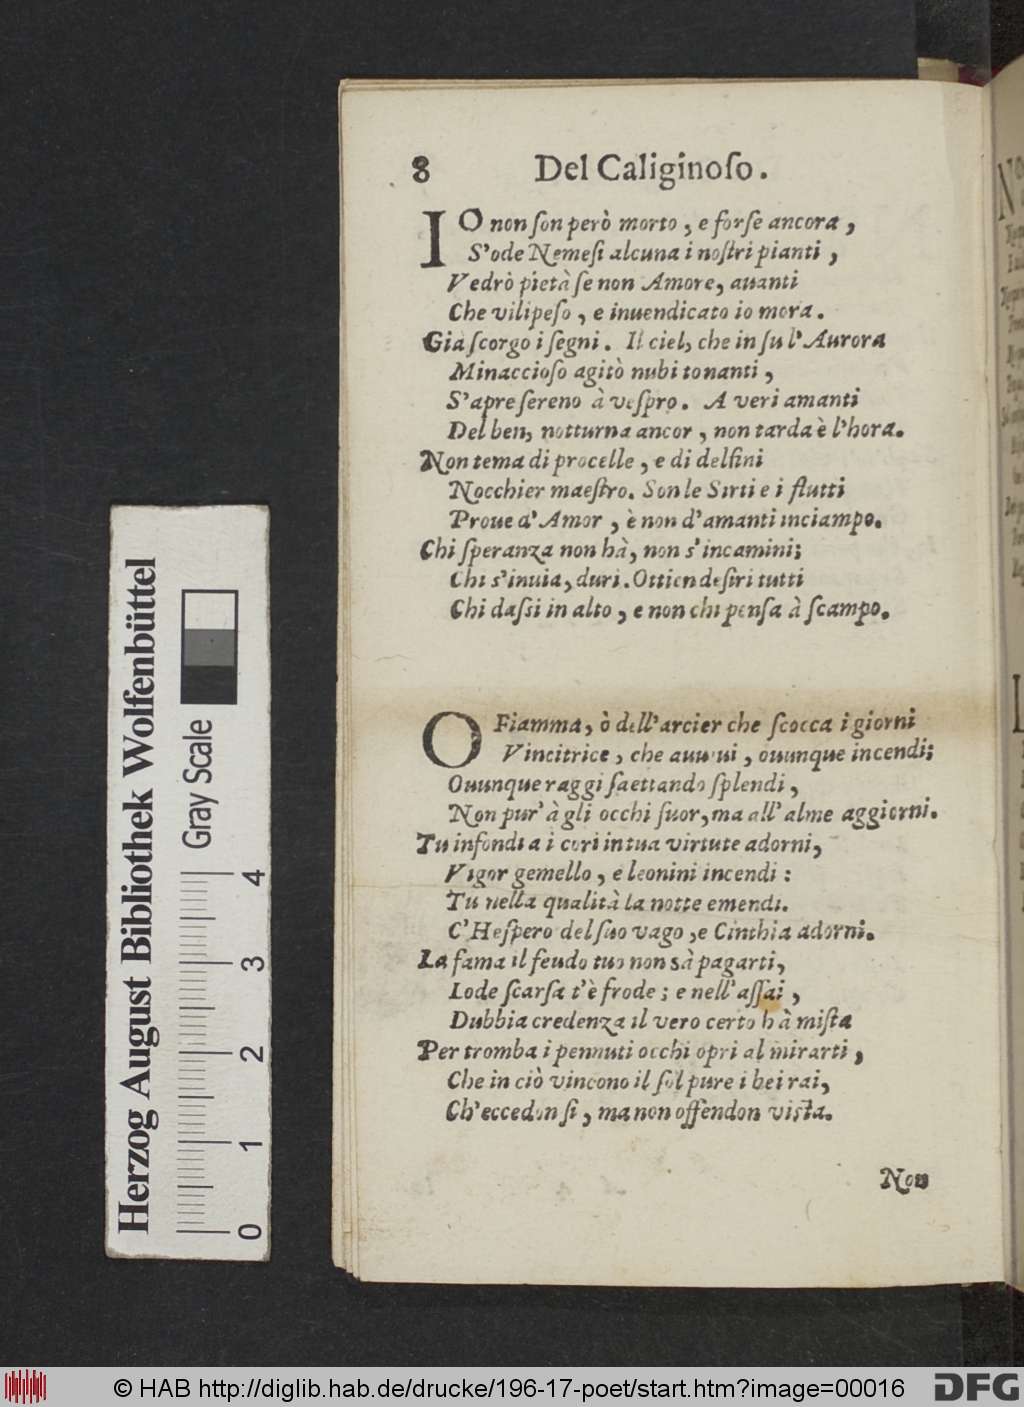 8 Del Caliginoſo.
IO non ſon però morto, e forſe ancora,
S'ode Nemeſi alcuna i noſtri pianti,
Vedrò pietà ſe non Amore, auanti
Che vilipeſo, e inuendicato io mora.
Già ſcorgo i ſegni. Il ciel, che in ſu l'Aurora
Minaccioſo agitò nubi tonanti,
S'apre ſereno à veſpro. A veri amanti
Del ben, notturna ancor, non tarda è l'hora.
Non tema di procelle, e di delfini
Nocchier maeſtro. Son le Sirti e i flutti
Proue d'Amor, è non d'amanti inciampo.
Chi ſperanza non hà, non s'incamini;
Chi s'inuia, duri. Ottien deſiri tutti
Chi daſſi in alto, e non chi penſa à ſcampo.
O Fiamma, ò dell'arcier che ſcocca i giorni
Vincitrice, che auuiui, ouunque incendi;
Ouunque raggi ſaettando ſplendi,
Non pur' à gli occhi ſuor, ma all' alme aggiorni.
Tu infondi a i cori in tua virtute adorni,
Vigor gemello, e leonini incendi:
Tu nella qualità la notte emendi.
C'Heſpero del ſuo vago, e Cinthia adorni.
La fama il feudo tuo non sà pagarti,
Lode ſcarſa t'è frode; e nell'aſſai,
Dubbia credenza il vero certo hà miſta
Per tromba i pennuti occhi opri al mirarti,
Che in ciò vincono il ſol pure i bei rai,
Ch'eccedon ſi, ma non offendon viſta.
Non
Herzog August Bibliothek Wolfenbüttel
Gray Scale
0 1 2 3 4
© HAB http://diglib.hab.de/drucke/196-17-poet/start.htm?image=00016
DFG